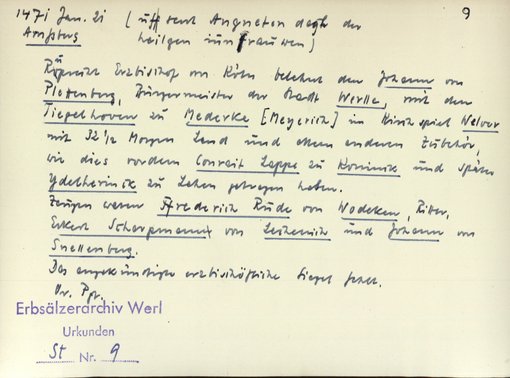 9
1471 Jan. 21 (uff sent Angneten dagh der
Arnsberg heilgen junfrauwen)
Ruprecht Erzbischof von Köln belehnt den Johann von
Plettenberg, Bürgermeister der Stadt Werlle, mit dem
Tiegelhoven zu Mederke [Meyerich] im Kirchspiel Welver
mit 32 1/2 Morgen Land und allem anderen Zubehör,
wie dies vordem Conrait Leppe zu Koninik und später
Ydelherinik zu Lehen getragen haben.
Zeugen waren Frederich Rude von Wodeken, Ritter,
Eckert Scharpmann von Lechenich und Johann von
Snellenberg.
Das angekündigte erzbischöfliche Siegel fehlt.
Or. Pgt.
Erbsälzerarchiv Werl
Urkunden
St Nr. 9